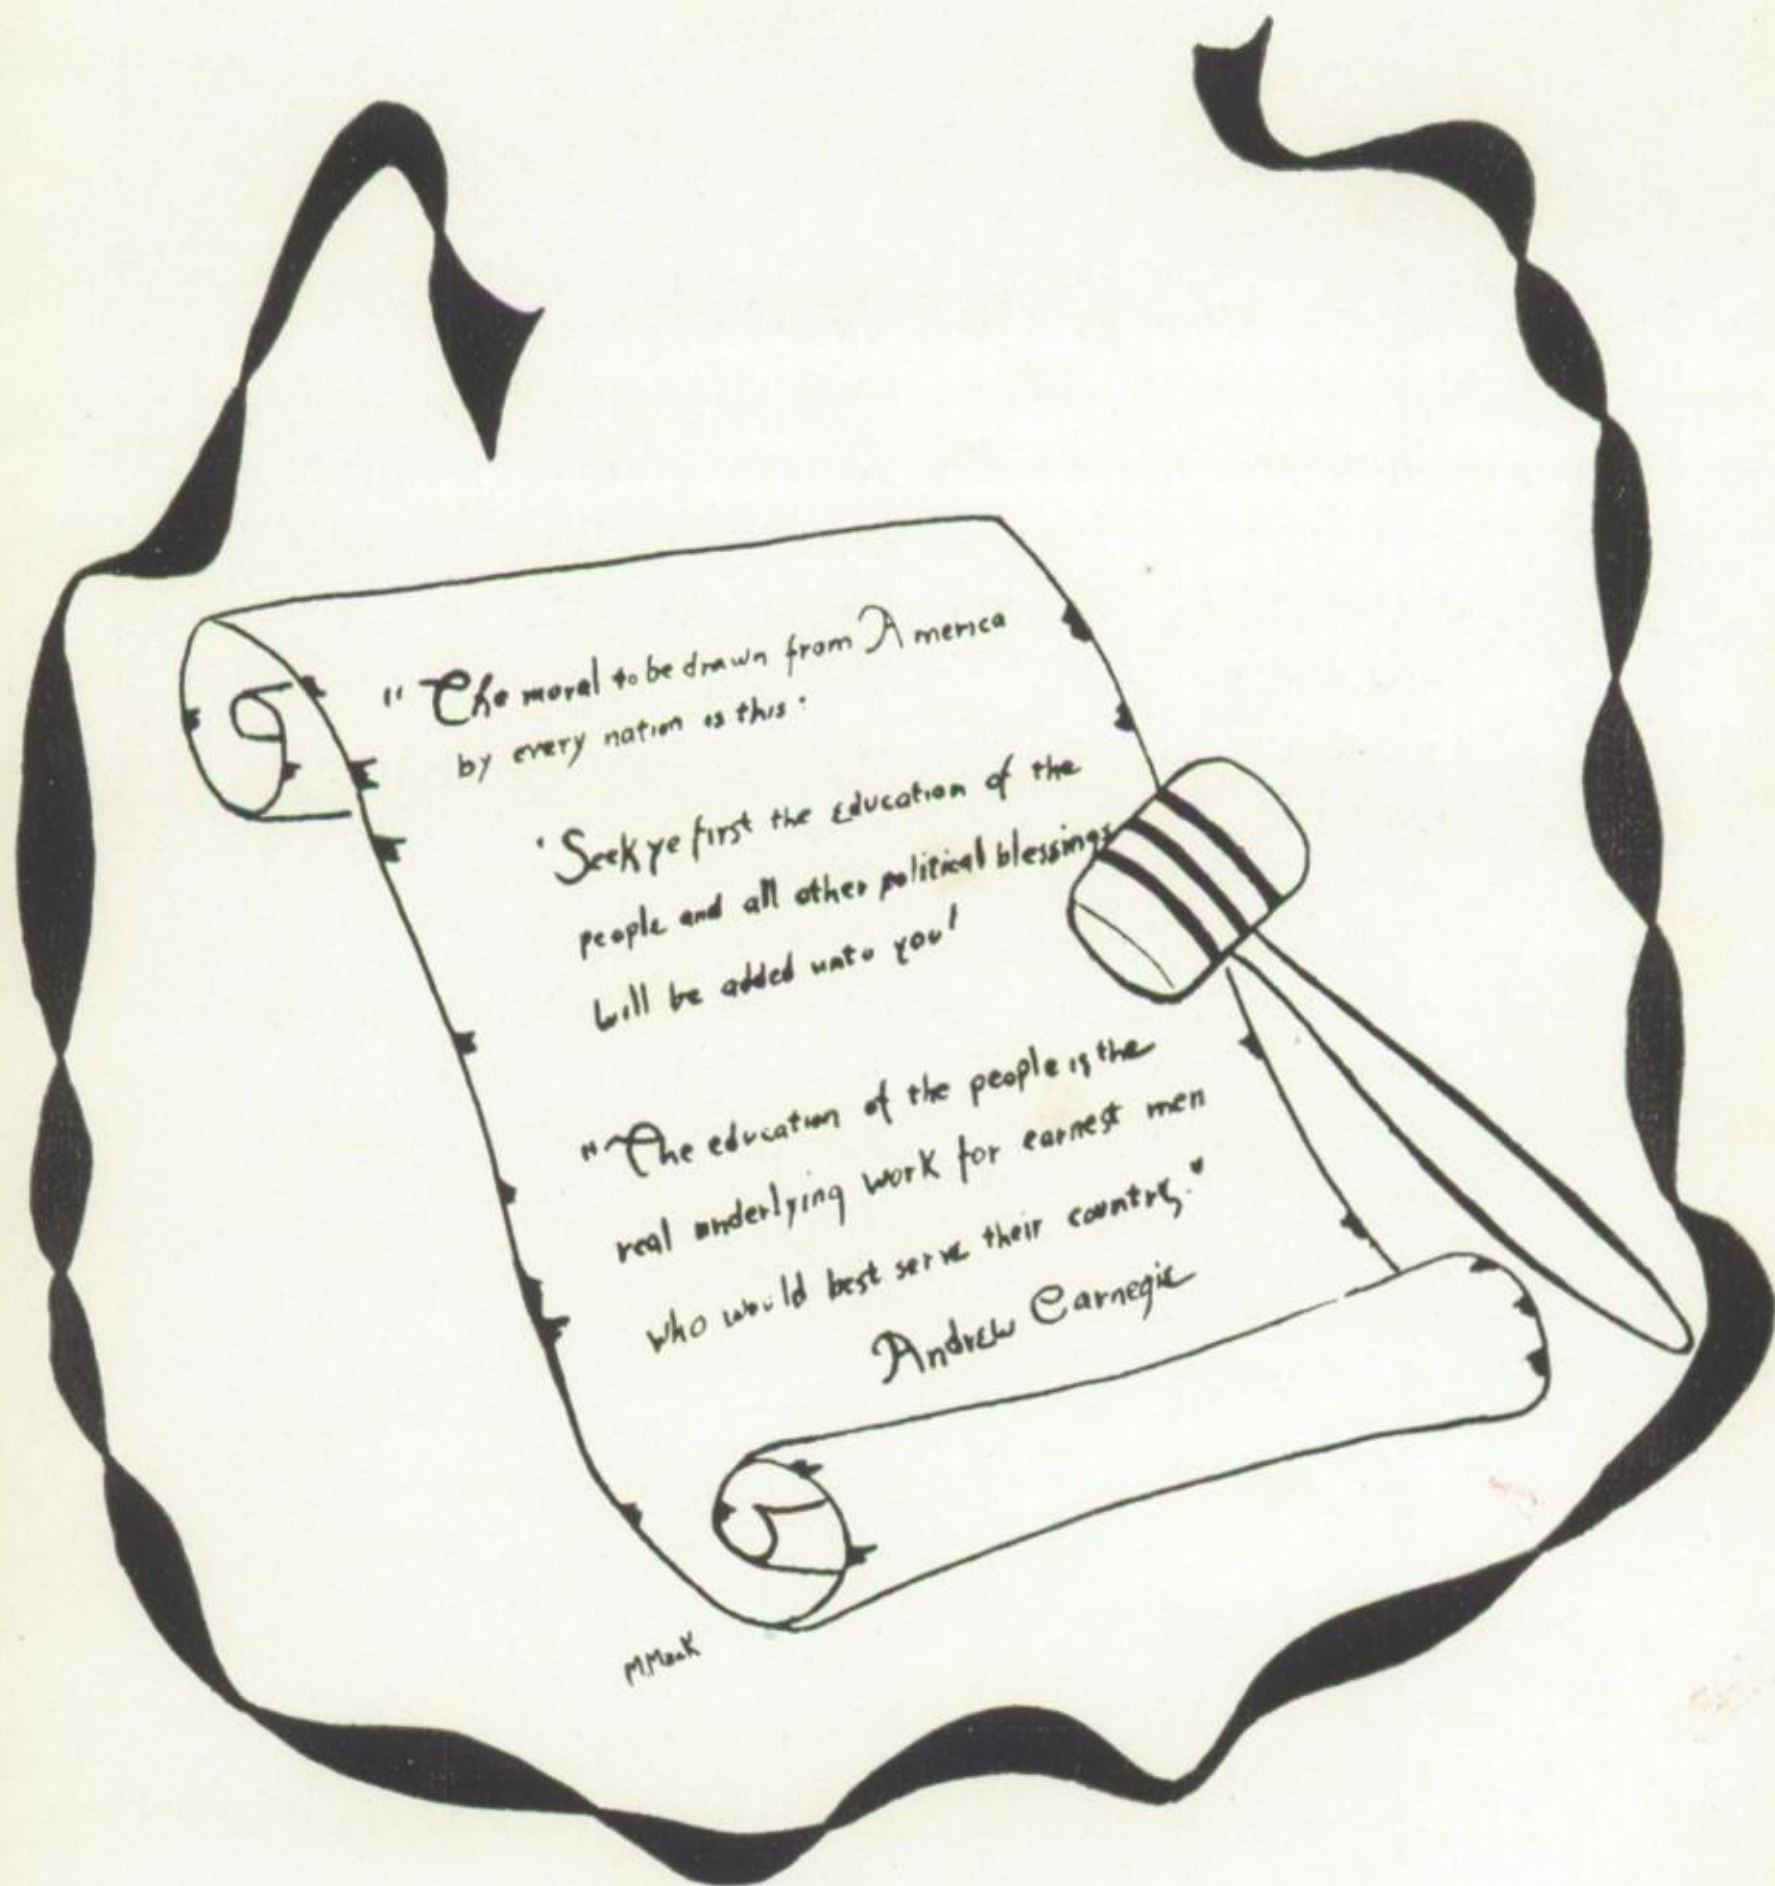 "The moral to be drawn from America
by every nation is this.
'Seek ye first the education of the
people and all other political blessings
will be added unto you'
"The education of the people is the
real underlying work for earnest men
who would best serve their country."
Andrew Carnegie
M.Mack